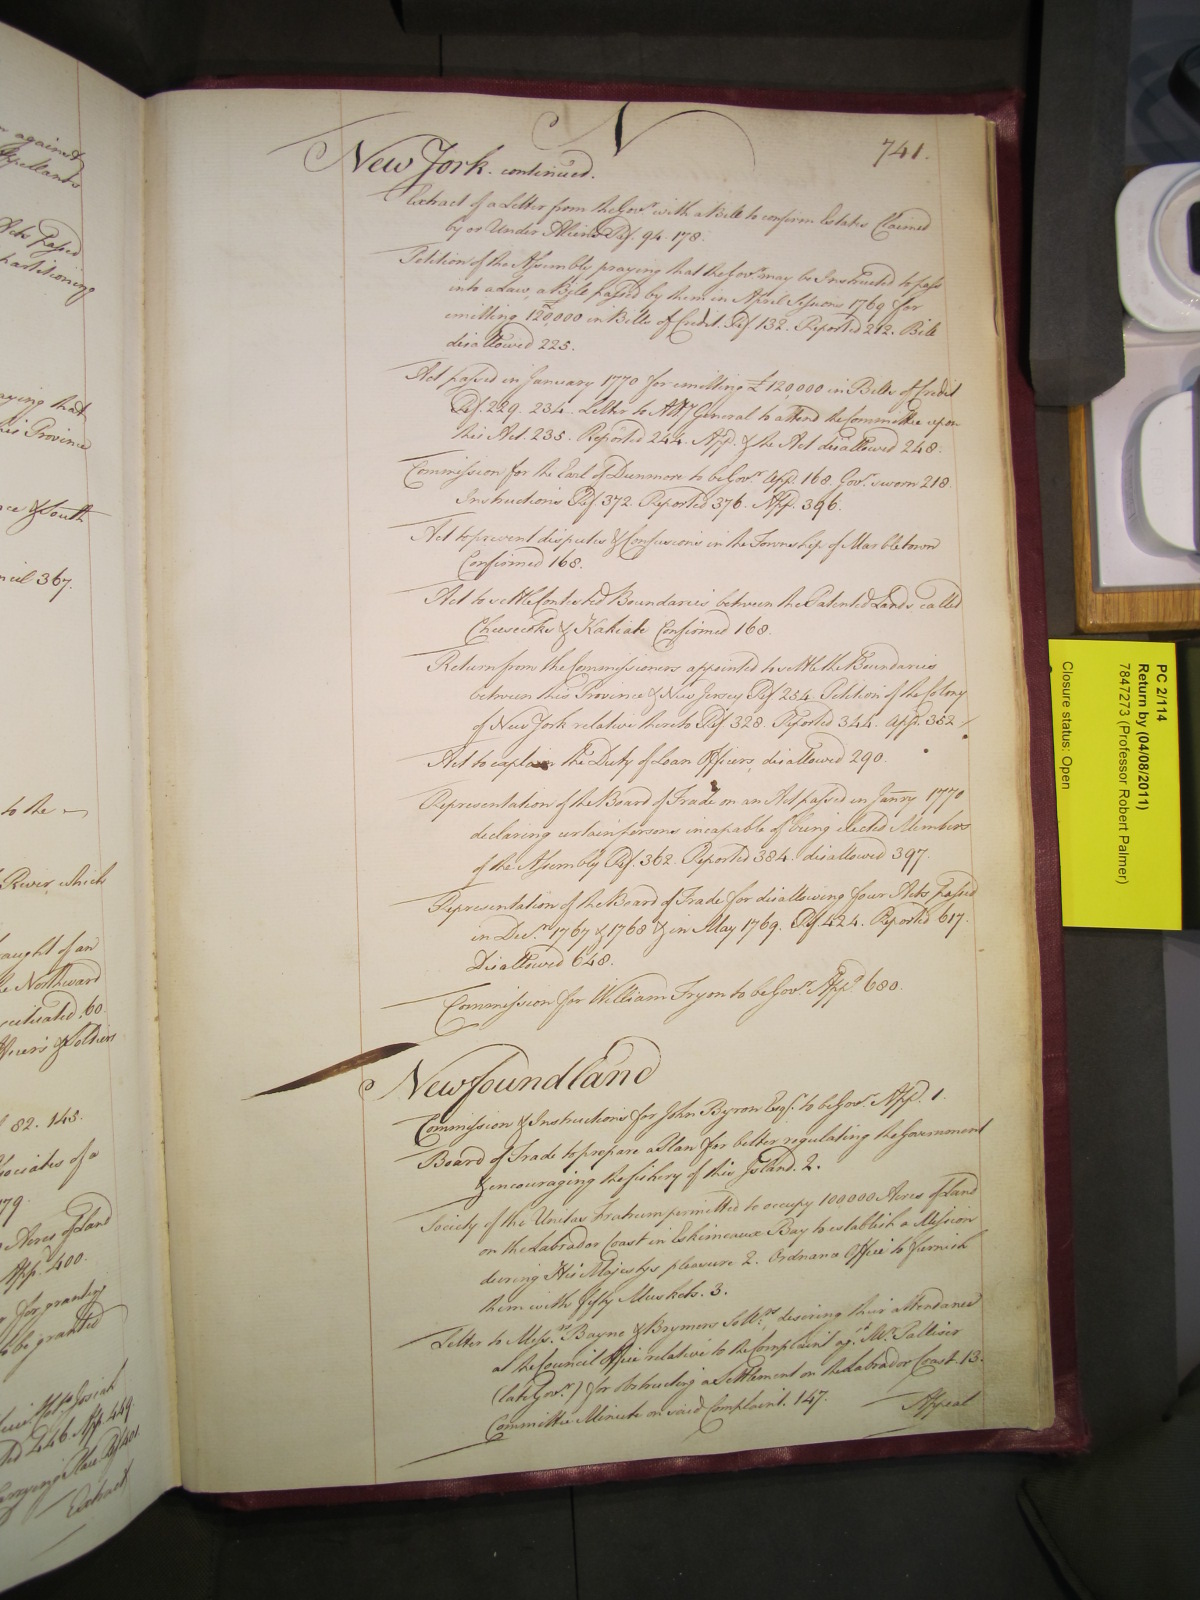 r against
Appellants
Acts passed
partitioning
aying that
his Province
ce & South
ncil 367.
to the
River, which
aught of an
e Northward
60
82. 145.
sociates of a
79.
Acres of Land
App.d 400.
for granting
to be granted
446. App. 449
Extract
N
741.
New York. continued.
Extract of a Letter from the Gov.r with a Bill to confirm Estates Claimed
by or Under Aliens Ref. 94. 178.
Petition of the Assembly praying that the Gov.r may be Instructed to pass
into a Law, a Bill passed by them in April Sessions 1769 for
emitting 120,000 in Bills of Credit. Ref 132. Reported 212. Bill
disallowed 225.
Act passed in January 1770 for emitting £120,000 in Bills of Credit
Ref. 229. 234. Letter to Atty General to attend the Committee upon
this Act. 235. Reported 244. App. & the Act disallowed 248.
Commission for the Earl of Dunmore to be Gov.r App. 168. Gov.r sworn 218.
Instructions Ref. 372. Reported 376. App. 396.
Act to prevent disputes & Confusions in the Township of Marbletown
Confirmed 168.
Act to settle Contested Boundaries between the Patented Lands called
Cheesecoks & Kakiate Confirmed 168.
Return from the Commissioners appointed to settle the Boundaries
between this Province & New Jersey Ref 254. Petition of the Colony
of New York relative thereto Ref 328. Reported 344. App. 352
Act to explain the Duty of Loan Officers, disallowed 290.
Representation of the Board of Trade on an Act passed in Janry 1770
declaring certain persons incapable of being elected Members
of the Assembly Ref. 362. Reported 384. disallowed 397.
Representation of the Board of Trade for disallowing four Acts passed
in Dec.r 1767 & 1768 & in May 1769. Ref. 424. Reported 617.
Disallowed 648.
Commission for William Tryon to be Gov.r App.d 680.
Newfoundland
Commission & Instructions for John Byron Esq.r to be Gov.r App.d 1.
Board of Trade to prepare a Plan for better regulating the Government
& encouraging the fishery of this Island. 2.
Society of the Unitas Fratrum permitted to occupy 100000 Acres of Land
on the Labrador Coast in Eskimeaux Bay to establish a Mission
during His Majestys pleasure 2. Ordnance Office to furnish
them with fifty Muskets. 3.
Letter to Mess.rs Bayne & Brymer's Soll.rs desiring their attendance
at the Council Office relative to the Complaint ag.st Mr. Palliser
(late Gov.r) for Obstructing a Settlement on the Labrador Coast. 13.
Committee Minute on said Complaint. 147.
Appeal
PC 2/114
Return by (04/08/2011)
7847273 (Professor Robert Palmer)
Closure status: Open